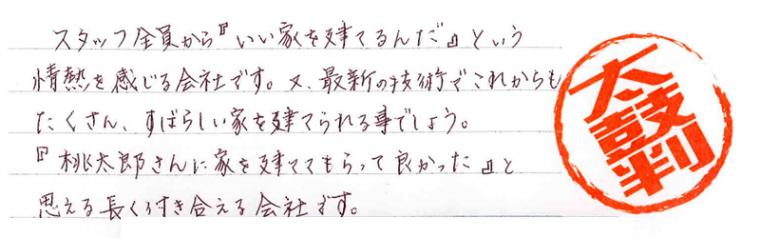 スタッフ全員から『いい家を建てるんだ』という
情熱を感じる会社です。又、最新の技術でこれからも
たくさん、すばらしい家を建てられる事でしょう。
『桃太郎さんに家を建ててもらって良かった』と
思える長くお付き合える会社です。
太鼓判